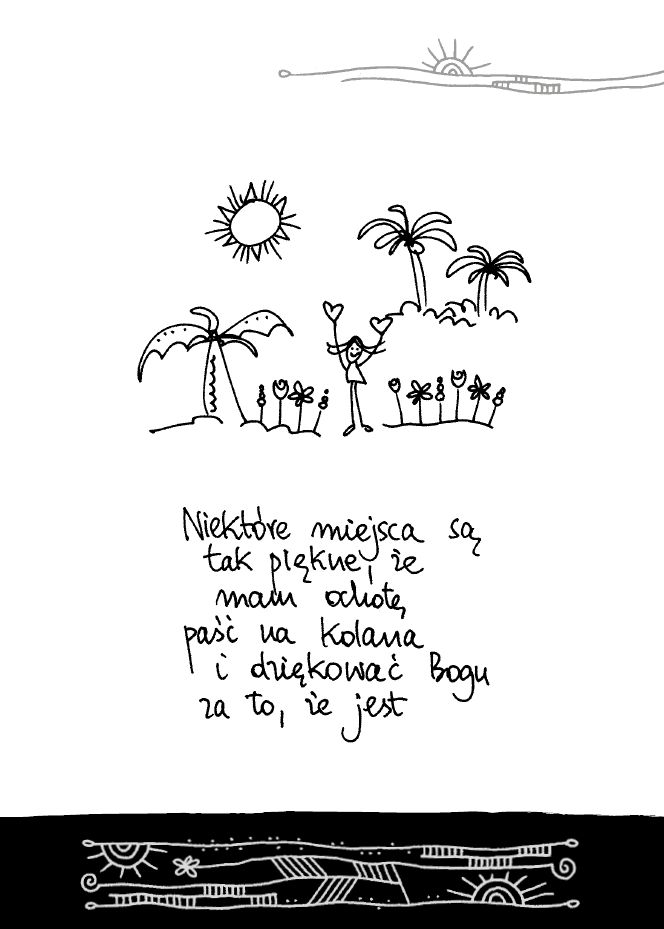 Niektóre miejsca są
tak piękne, że
mam ochotę
paść na kolana
i dziękować Bogu
za to, że jest